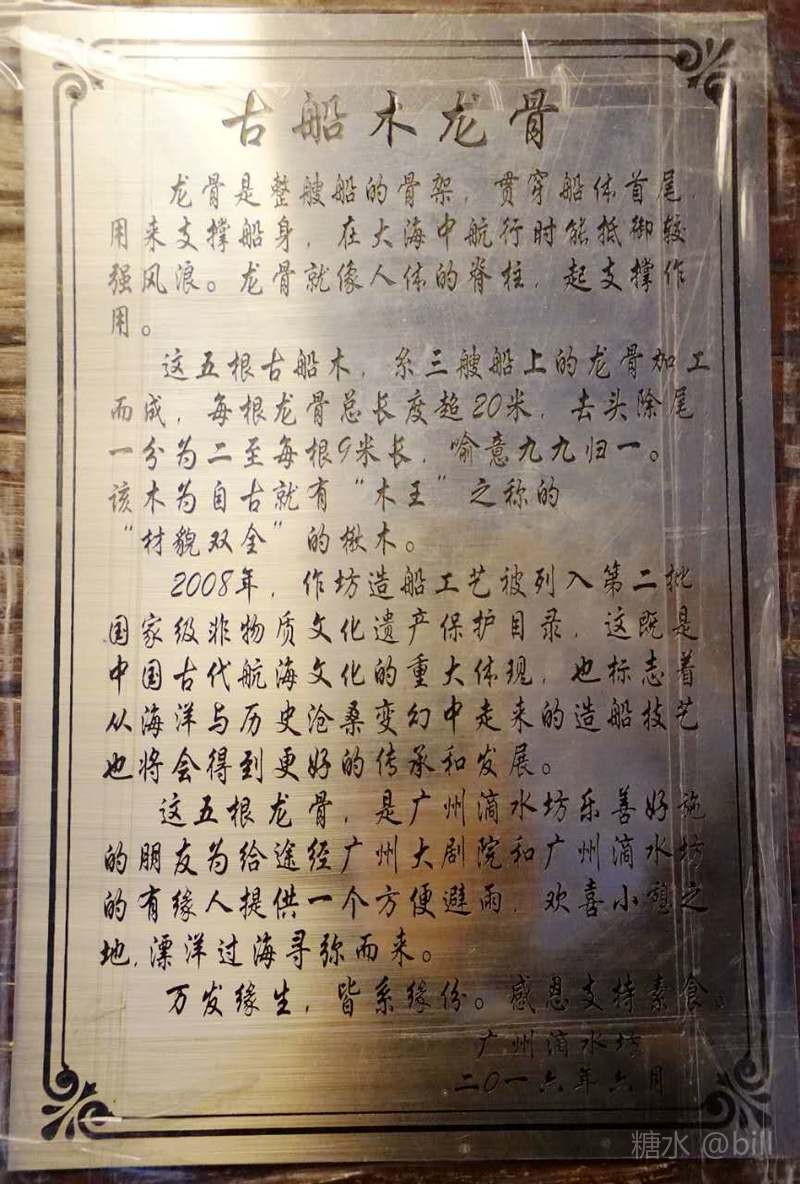 古船木龙骨
龙骨是整艘船的骨架，贯穿船体首尾
用来支撑船身，在大海中航行时能抵御较
强风浪。龙骨就像人体的脊柱，起支撑作
用。
这五根古船木，系三艘船上的龙骨加工
而成，每根龙骨总长度超20米，去头除尾
一分为二至每根9米长，喻意九九归一。
该木为自古就有“木王”之称的
“材貌双全”的楸木。
2008年，作坊造船工艺被列入第二批
国家级非物质文化遗产保护目录，这既是
中国古代航海文化的重大体现，也标志着
从海洋与历史沧桑变幻中走来的造船技艺
也将会得到更好的传承和发展。
这五根龙骨，是广州滴水坊乐善好施
的朋友为给途经广州大剧院和广州滴水坊
的有缘人提供一个方便避雨，欢喜小憩之
地，漂洋过海寻弥而来。
万发缘生，皆系缘份。感恩支持素食。
广州滴水坊
二〇一六年六月
糖水 @bill